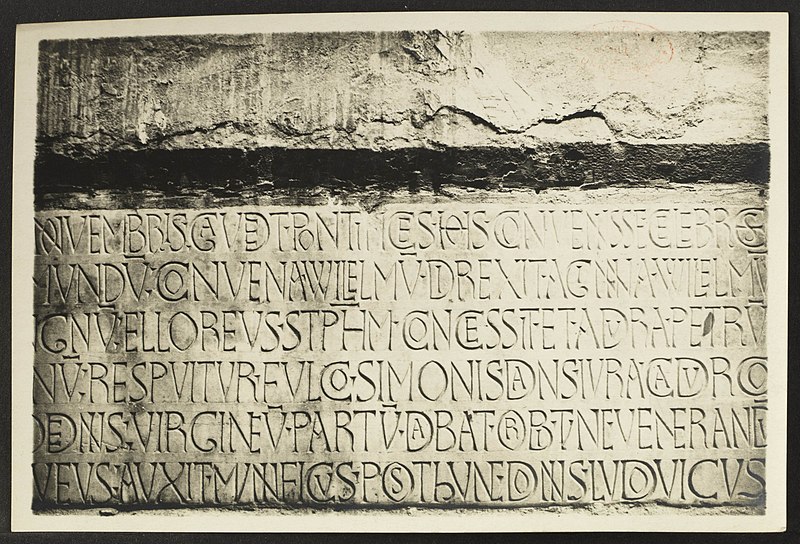 NVEMBRIS·GAVDET PONTIFICES HOS CONVENSSE CELEBRES
MVNDV̄·CONVENA·WILELMV̄·DREXIT·AGINNA·WILELMV̄
GNV̄·ELLOREVS·STPHM·CONCESSIT·ET ADVRA·PETRV̄
NV̄·RESPVITVR·FVLCO·SIMONIS DANS IVRA CADVRCO
DEDNNS·VIRGINEV̄·PARTV̄·DABAT ORBI·TNE VENERANDV̄
VEVS·AVXIT·MVNIFICVS·POST HVNC·DOMNS LVDOVICVS